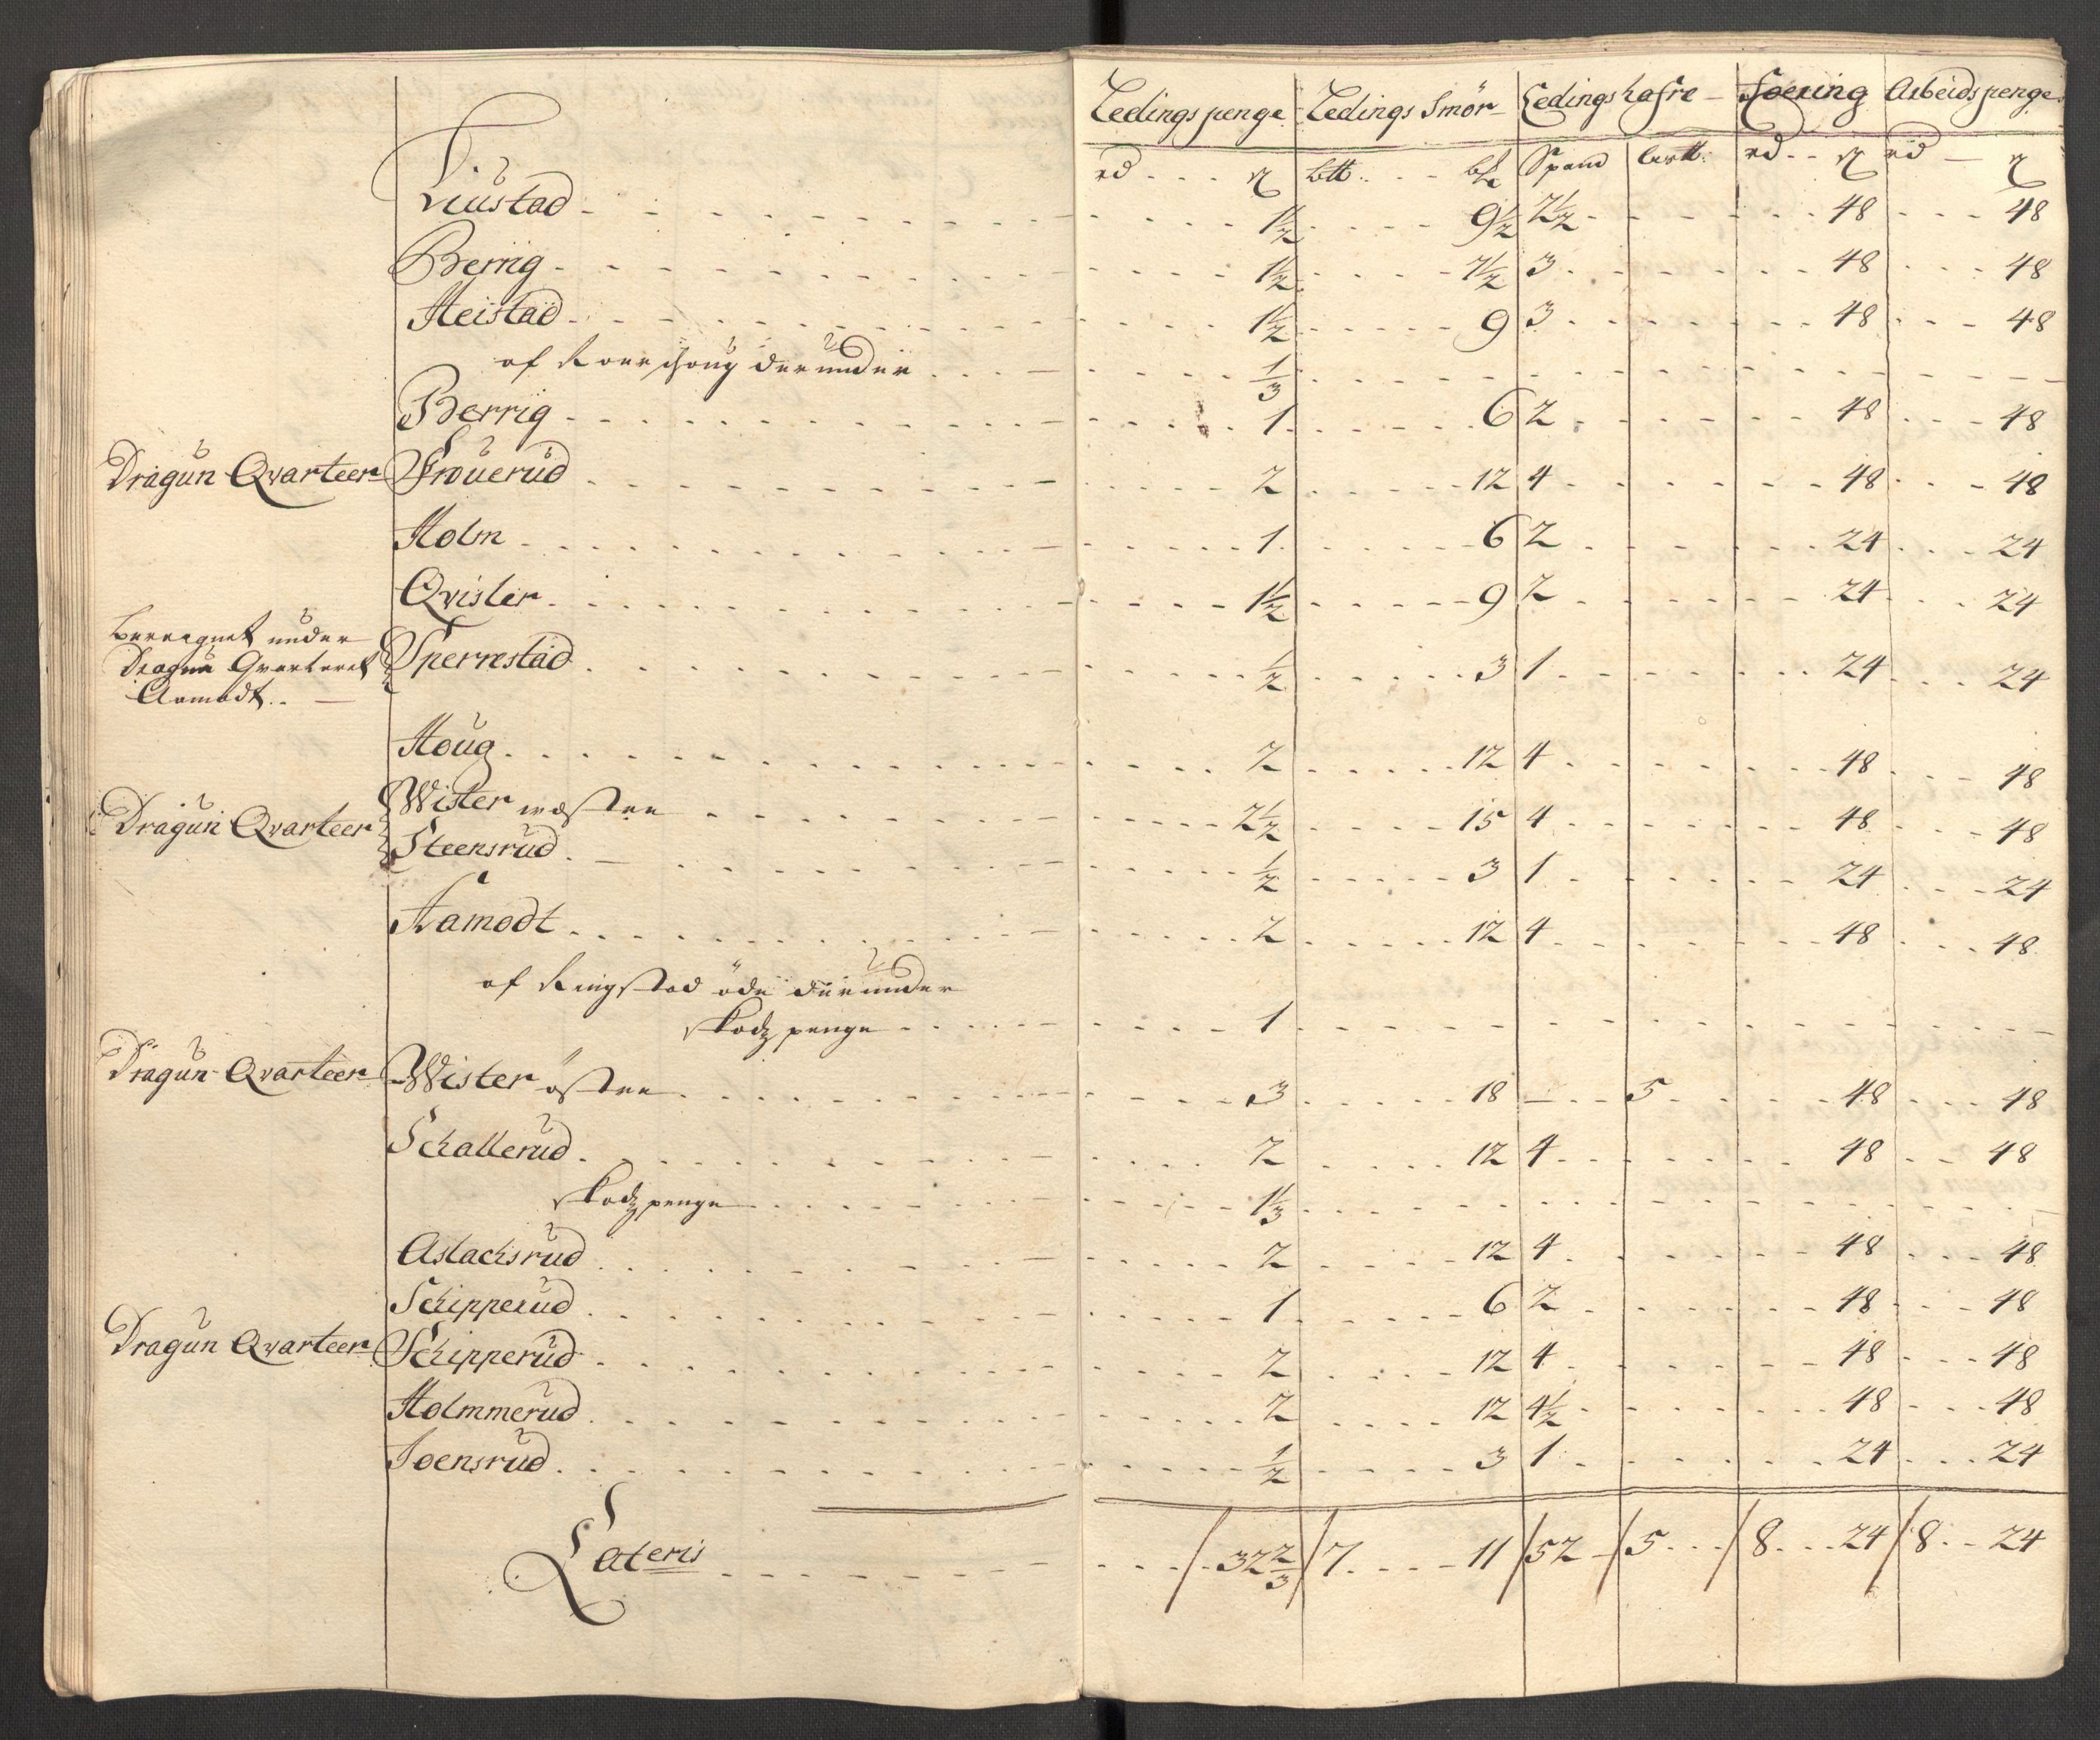 Ledings penge Ledings Smör Ledings hafre Foering Arbeids penge
rd ß btt: Spand rd ß rd ß
Liustad 1½ 9½ 2½ 48 48
Berrig 1½ 7½ 3 48 48
Heistad 1½ 9 3 48 48
af derunder 1/3
Berrig 1 6 2 48 48
Dragun Qvarteer Frouerud 2 12 4 48 48
Holm 1 6 2 24 24
Qvisler 1½ 9 2 24 24
Beregnet under
Dragun Qvarteret Sperrestad ½ 3 1 24 24
Aamodt
Houg 2 12 4 48 48
Wister wæstre 2½ 15 4 48 48
Dragun Qvarteer
Steensrud ½ 3 1 24 24
Aamodt 2 12 4 48 48
af Ringstad öde derunder
skodz penge 1
Dragun Qvarteer Wister östre 3 18 — 5 48 48
Schallerud 2 12 4 48 48
skodz penge 1⅓
Aslachsrud 2 12 4 48 48
Schipperud 1 6 2 48 48
Dragun Qvarteer Schipperud 2 12 4 48 48
Holmmerud 2 12 4½ 48 48
Joensrud ½ 3 1 24 24
Lateris 32 2/3 7 11 52 5 8 24 8 24